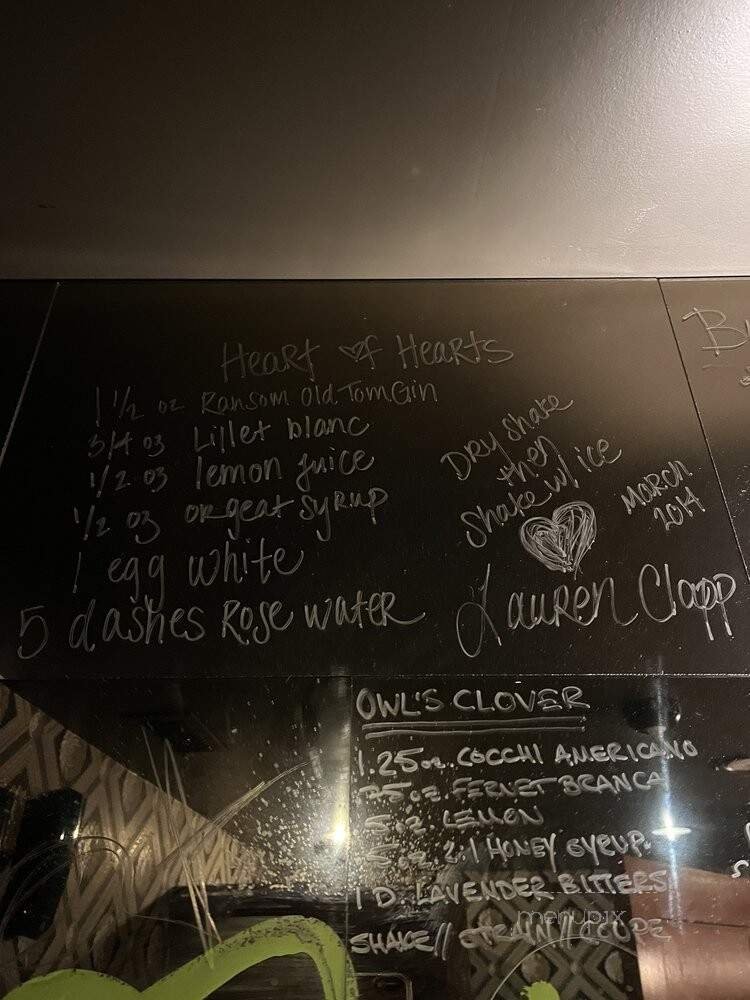 Heart of Hearts
1 1/2 oz Ransom Old Tom Gin
3/4 oz Lillet blanc
1/2 oz lemon juice
1/2 oz orgeat syrup
1 egg white
5 dashes Rose water
Dry shake
then
shake w/ ice
March
2014
Lauren Clapp
OWL'S CLOVER
1.25 oz. COCCHI AMERICANO
FERNET BRANCA
.5 oz. LEMON
2:1 HONEY SYRUP.
1 D. LAVENDER BITTERS
SHAKE// STRAIN// COUPE
menupix